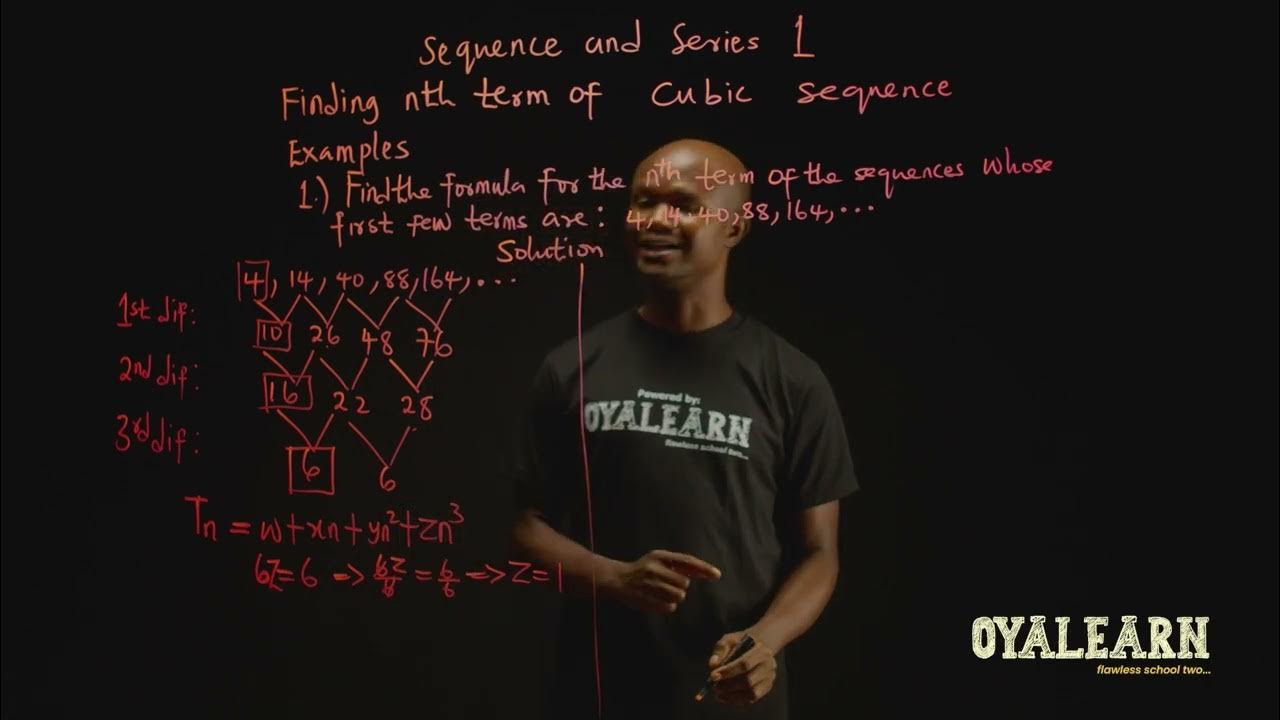 Sequence and Series 1
Finding nth term of cubic sequence
Examples
1.) Find the formula for the nth term of the sequences whose
first few terms are: 4, 14, 40, 88, 164, ...
Solution
4, 14, 40, 88, 164, ...
1st dif:
10 26 48 76
2nd dif:
16 22 28
3rd dif:
6 6
Tn = w+xn+yn²+zn³
6z=6 => 6z/6 = 6/6 => z=1
Powered by:
OYALEARN
flawless school two...
OYALEARN
flawless school two...